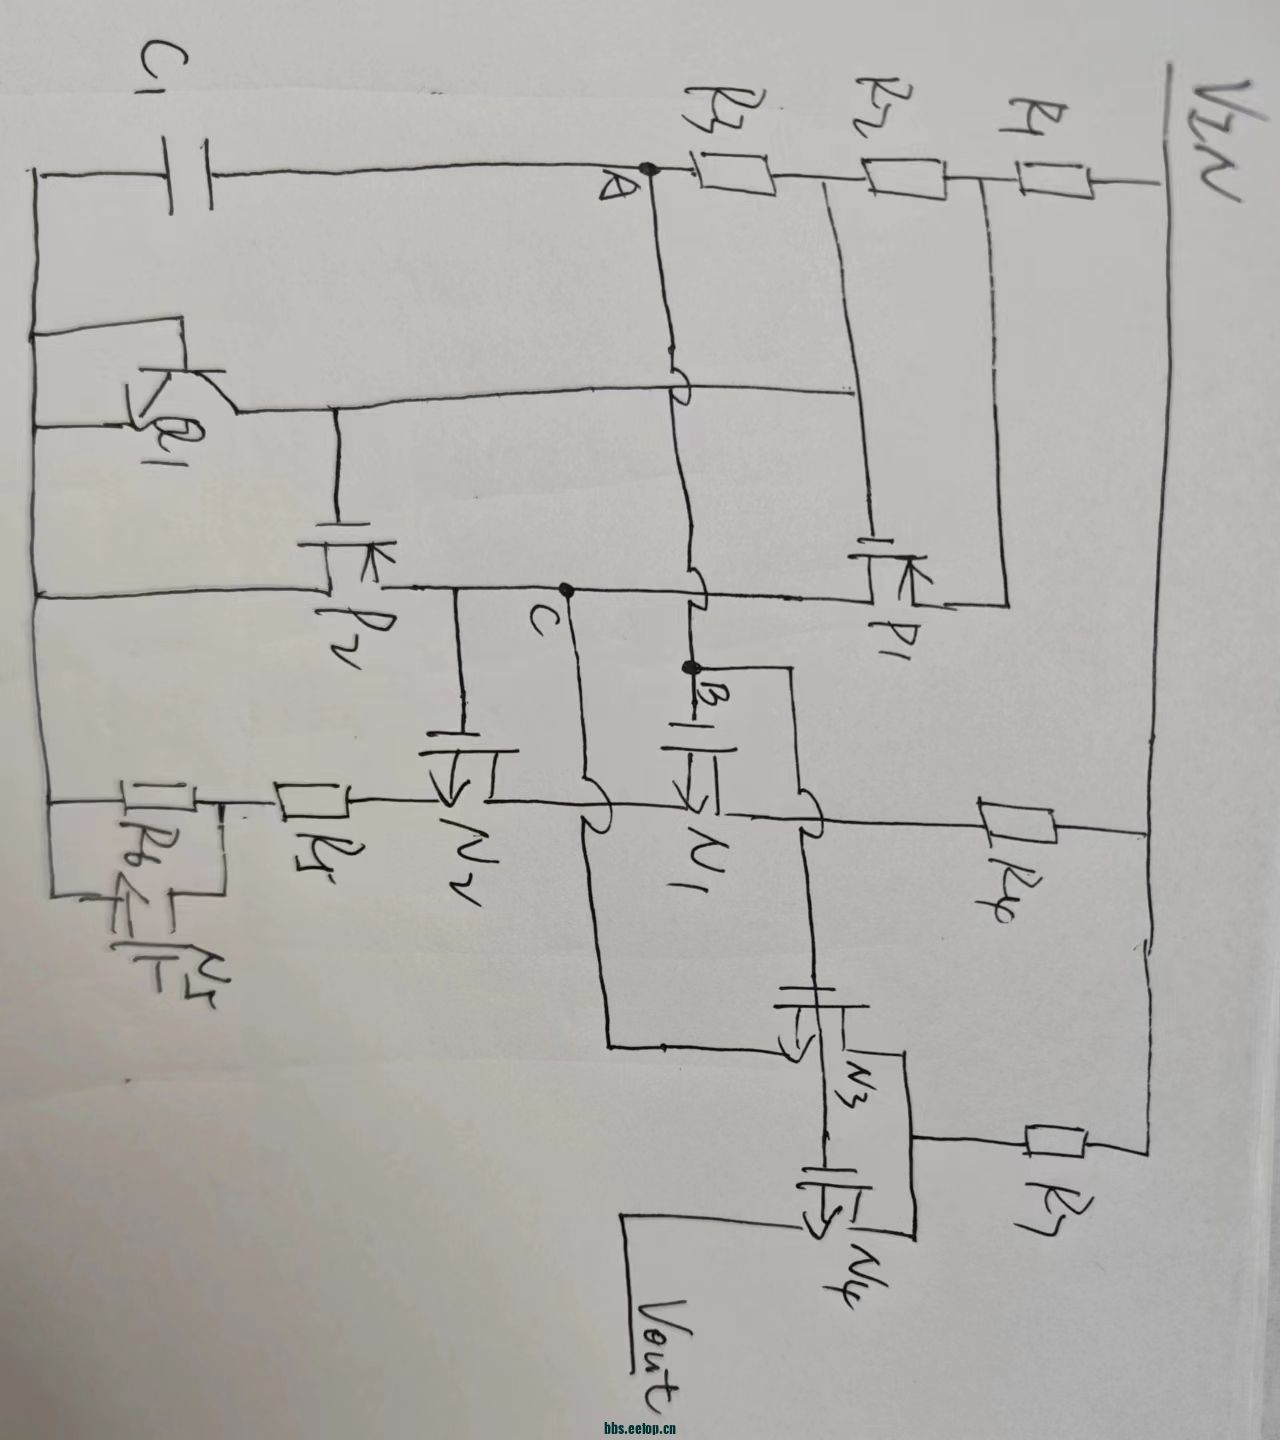 VIN
R1
R2
R3
A
C1
Q1
P1
P2
C
B
N1
N2
R4
R5
R6
N5
N3
N4
R7
Vout
bbs.eetop.cn